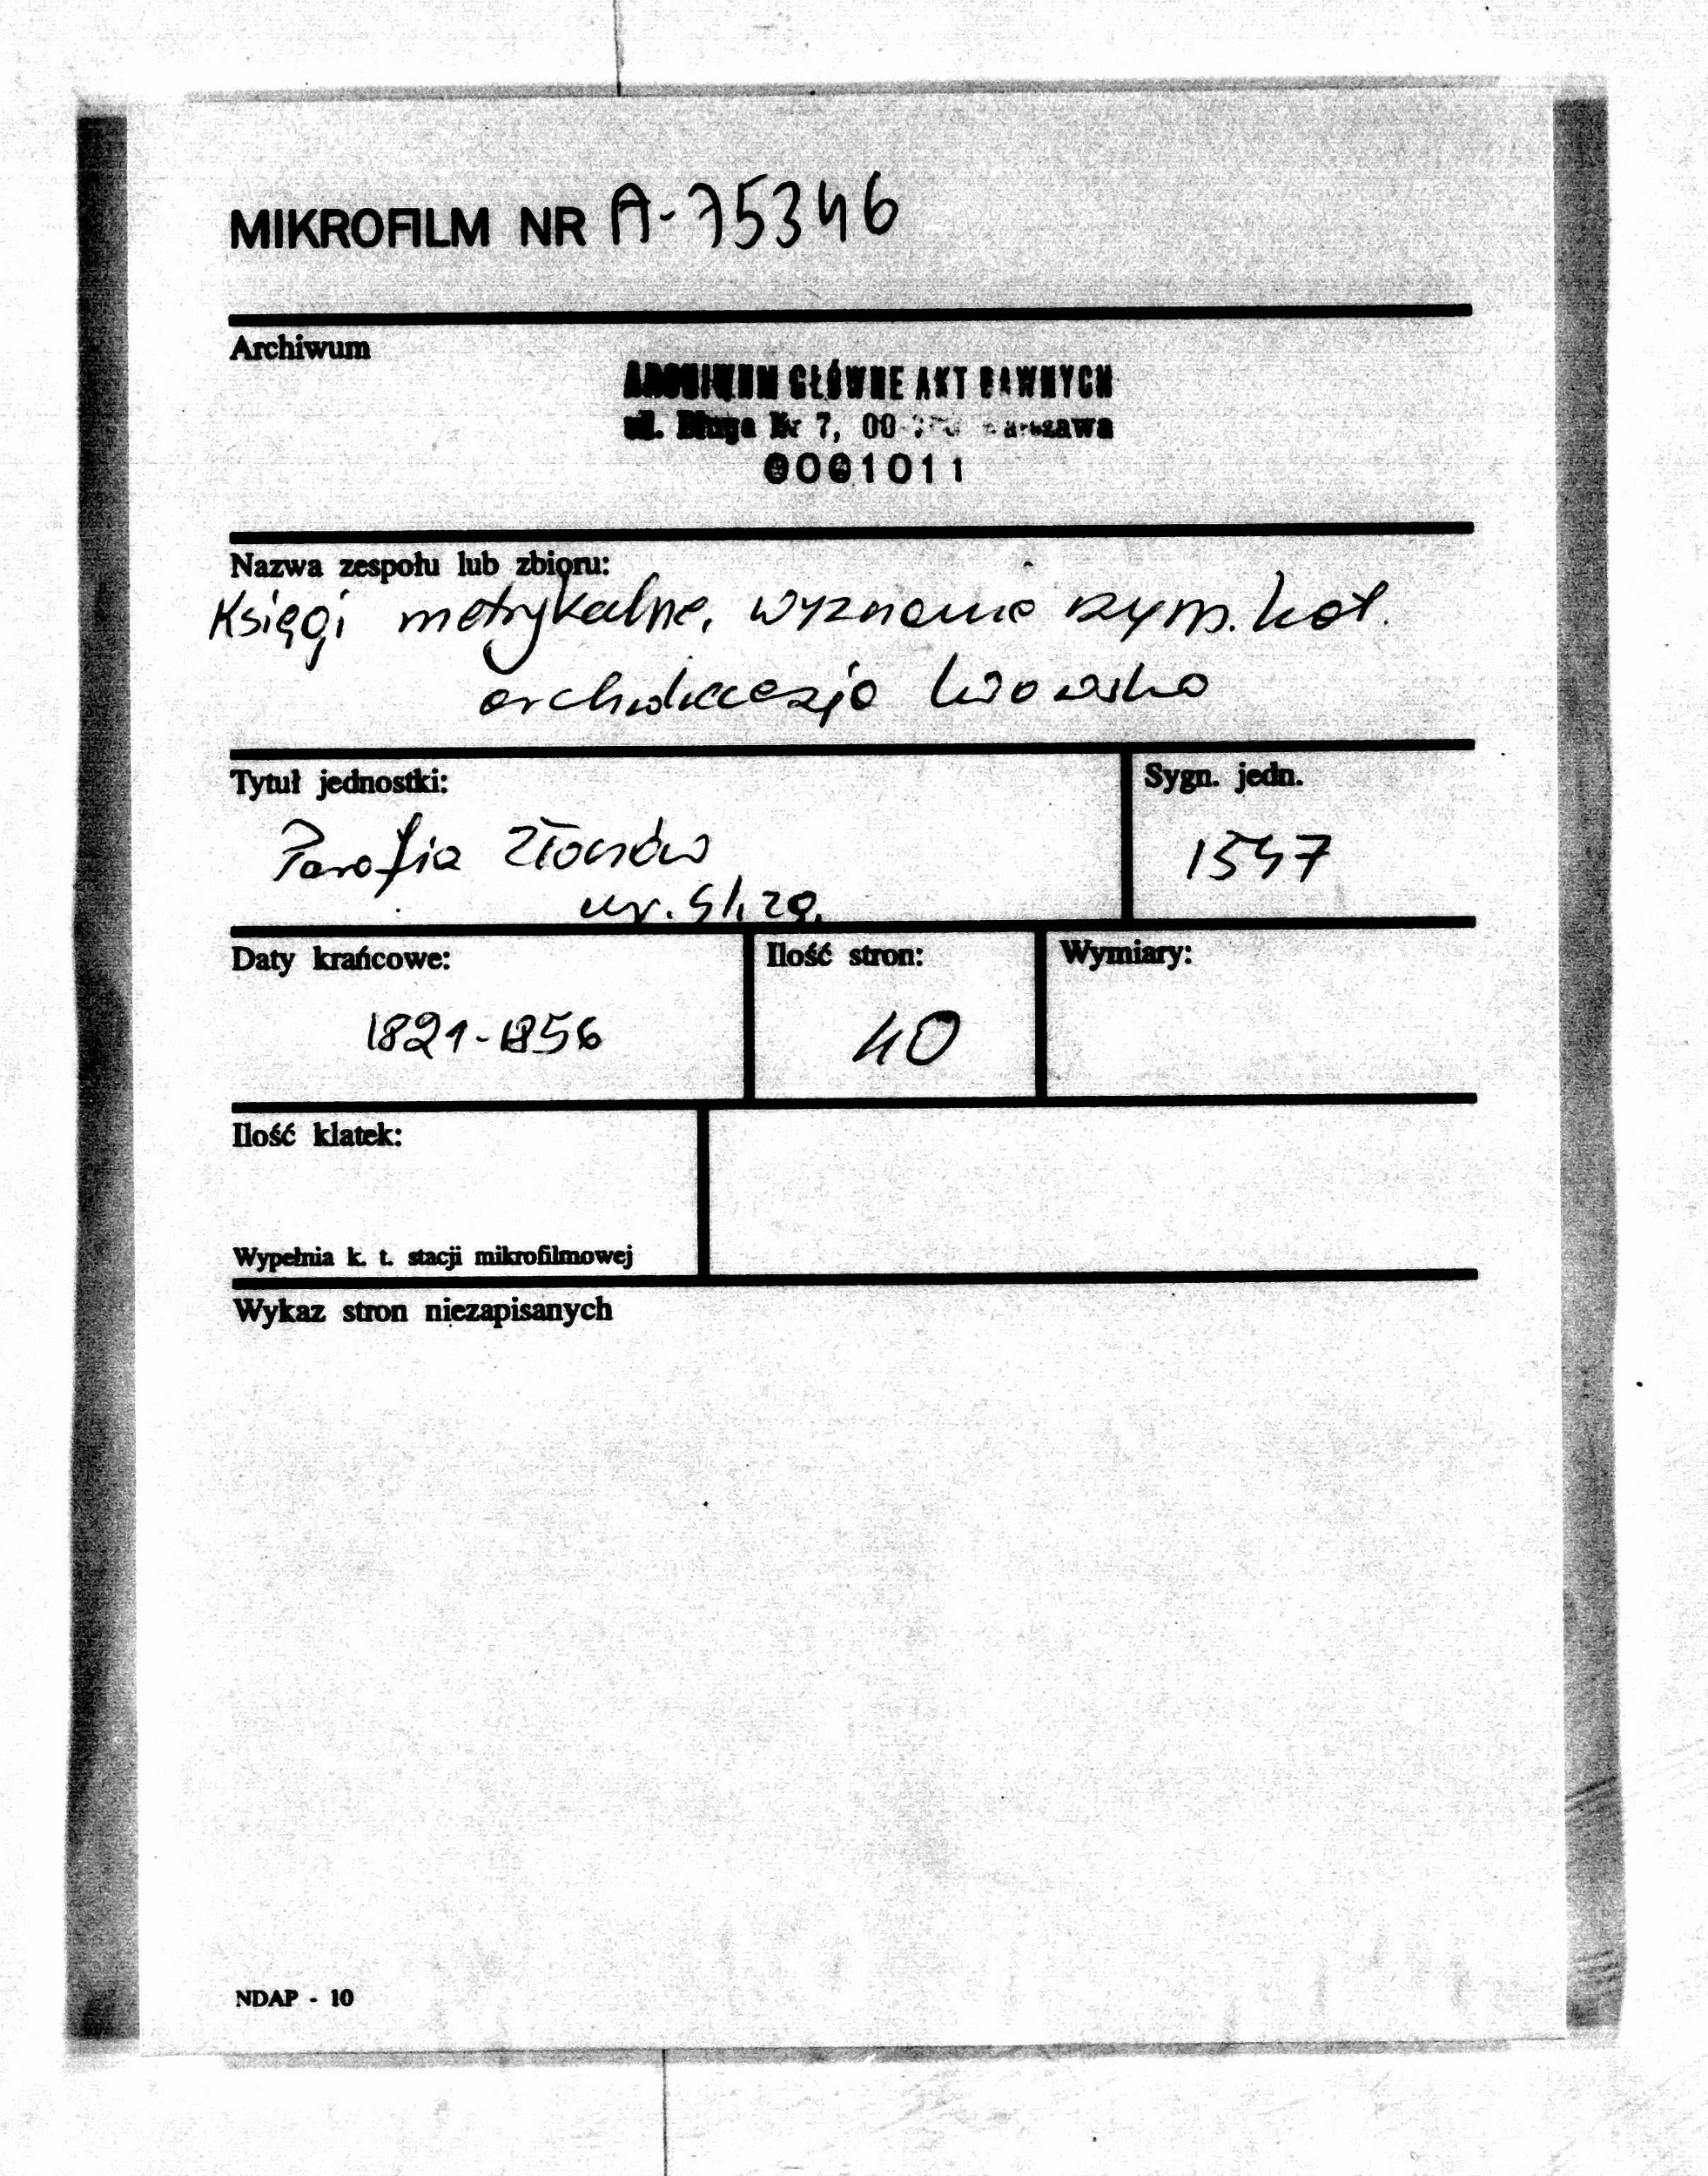 MIKROFILM NR A-75346
Archiwum
ARCHIWUM GŁÓWNE AKT DAWNYCH
ul. Długa Nr 7, 00- Warszawa
0001011
Nazwa zespołu lub zbioru:
Księgi metrykalne, wyznanie rzym. kat.
archidiecezja lwowska
Tytuł jednostki:
Sygn. jedn.
Parafia Złoczów
1547
ur. śl. zg.
Daty krańcowe:
Ilość stron:
Wymiary:
1821-1856
40
Ilość klatek:
Wypełnia k. t. stacji mikrofilmowej
Wykaz stron niezapisanych
NDAP - 10